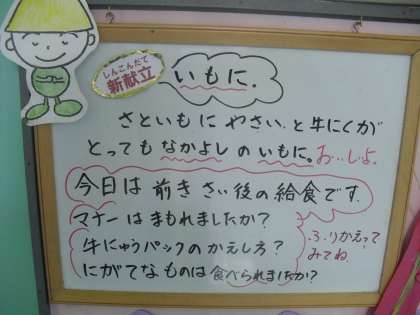 しんこんだて
新献立
いもに.
さといもに やさい、と牛にくが
とっても なかよし の いもに。お…しよ
今日は 前きさい後の給食です.
マナーは まもれましたか？
牛にゅうパックの かえし方？
にがてなものは 食べられましたか？
ふりかえって
みてね.